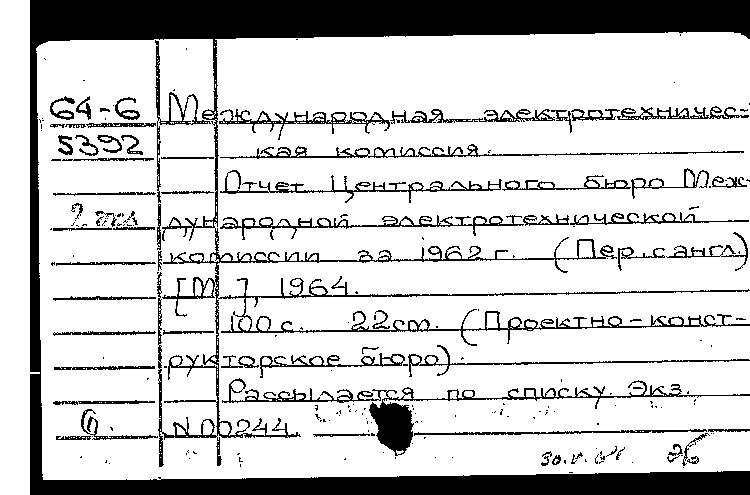 64-6 Международная электротехничес-
5392 кая комиссия.
Отчет Центрального бюро Меж-
2 экз дународной электротехнической
комиссии за 1962 г. (Пер. с англ.)
[М.], 1964.
100 с. 22 cm. (Проектно-конст-
рукторское бюро).
Рассылается по списку. Экз.
N 00244